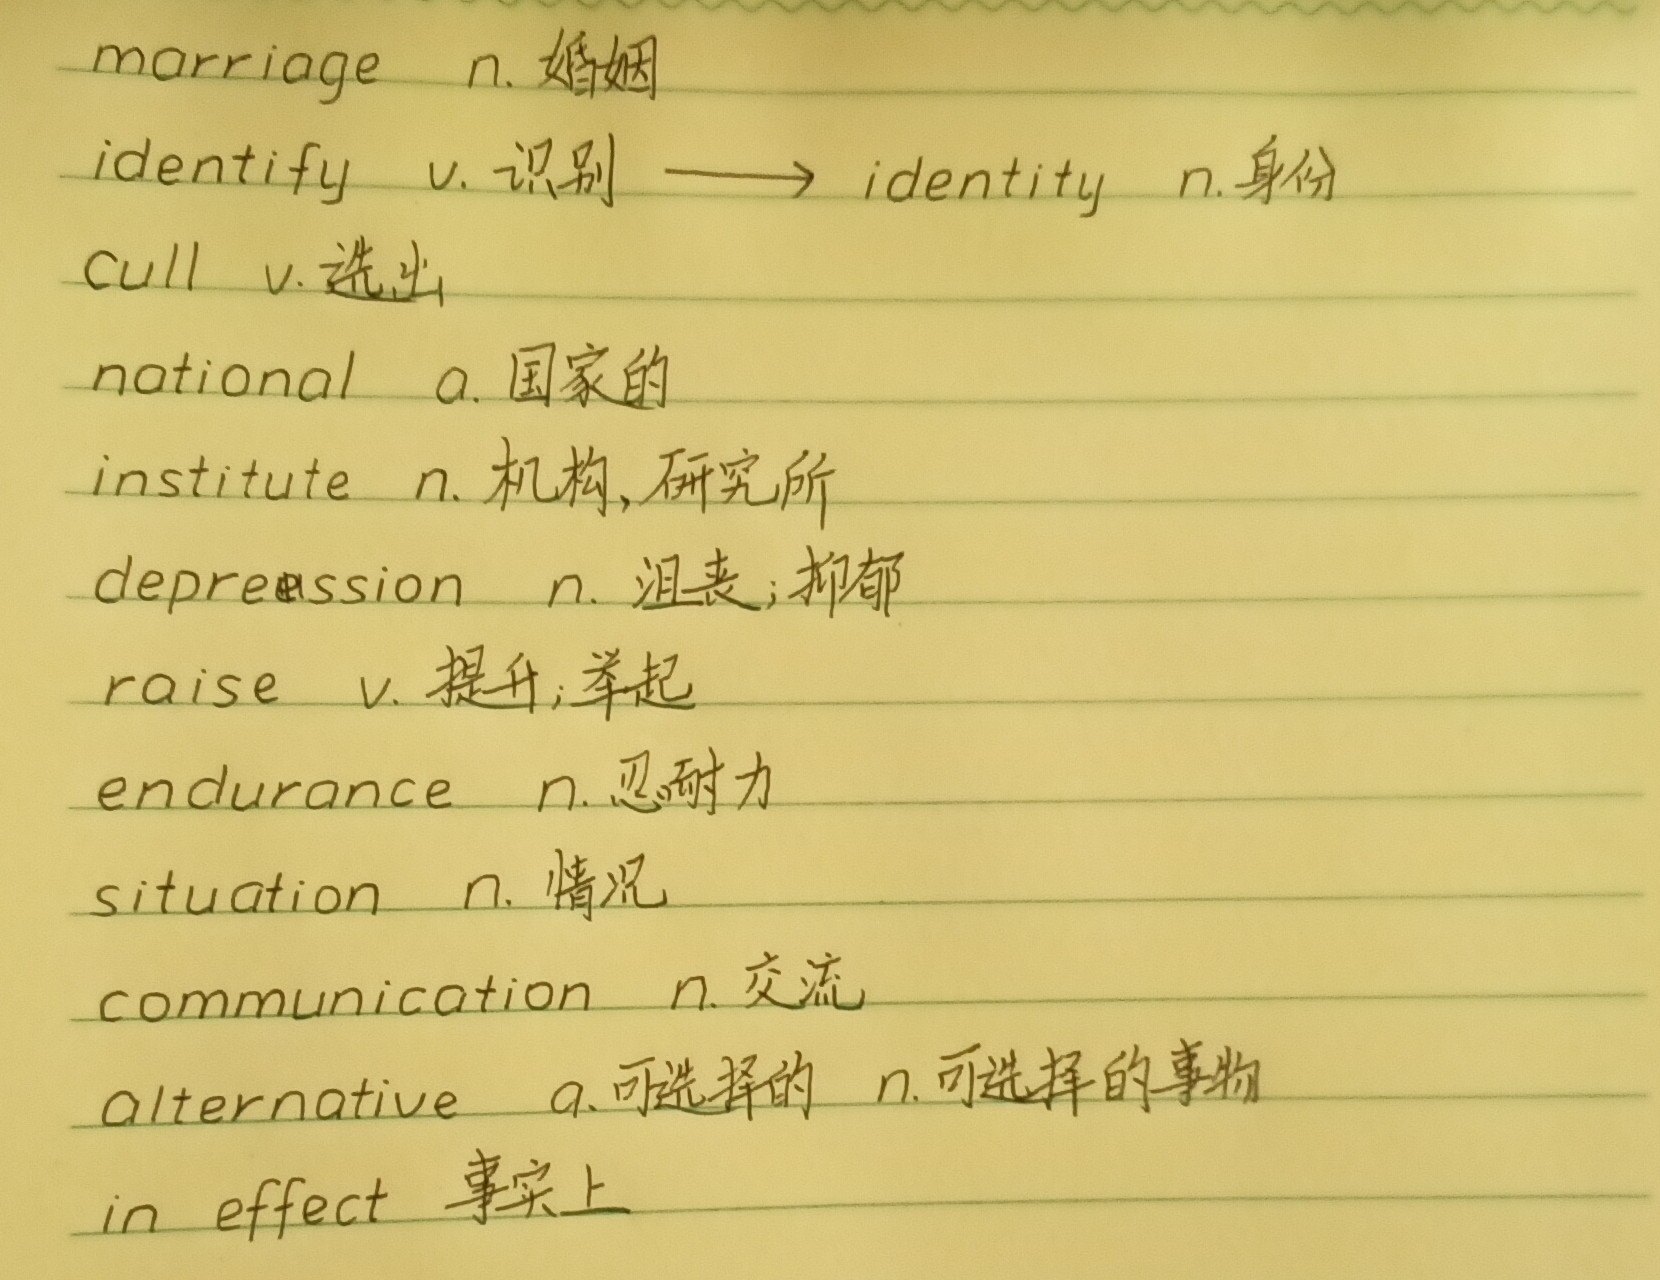 marriage n. 婚姻
identify v. 识别 → identity n. 身份
cull v. 选出
national a. 国家的
institute n. 机构, 研究所
n. 沮丧; 抑郁
raise v. 提升; 举起
endurance n. 忍耐力
situation n. 情况
communication n. 交流
alternative a. 可选择的 n. 可选择的事物
in effect 事实上